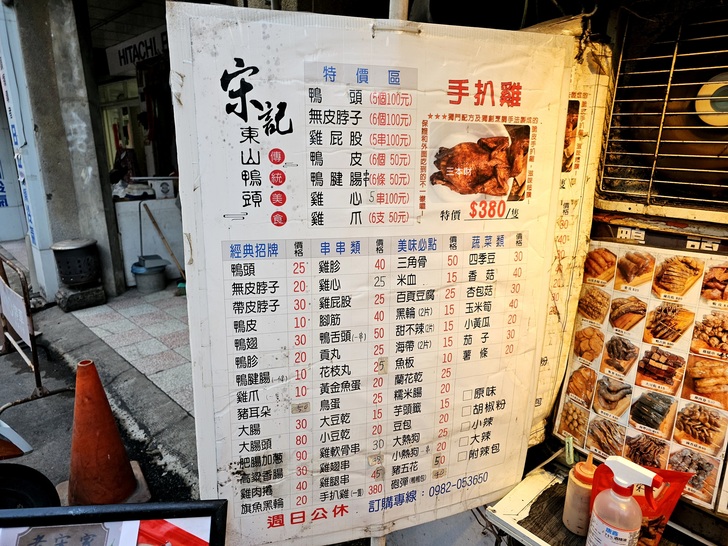 HITACHI
宋記
東山鴨頭
傳統美食
特價區
鴨頭 (6個100元)
無皮脖子 (6個100元)
雞屁股 (5串100元)
鴨皮 (6個 50元)
鴨腱腸 (6條 50元)
雞心 5串100元)
雞爪 (6支 50元)
手扒雞
★★★獨門配方及獨創烹調手法製成的
三本財
特價 $380/隻
經典招牌 價格
鴨頭 25
無皮脖子 20
帶皮脖子 30
鴨皮 10
鴨翅 30
鴨胗 20
鴨腱腸(一條) 10
雞爪 10
豬耳朵
大腸 30
大腸頭 80
肥腸加蔥 90
高粱香腸 30
雞肉捲 40
旗魚黑輪 20
串串類 價格
雞胗 40
雞心 25
雞屁股 25
腳筋 40
鴨舌頭(一串) 50
貢丸 20
花枝丸 25
黃金魚蛋 20
鳥蛋 25
大豆乾 15
小豆乾 20
雞軟骨串 30
雞翅串 35
雞腿串 45
手扒雞(一隻) 380
美味必點 價格
三角骨 50
米血 15
百頁豆腐 25
黑輪(2片) 15
甜不辣(2片) 15
海帶(2片) 15
魚板 10
蘭花乾 25
糯米腸 20
芋頭籤 15
豆包 20
大熱狗 25
小熱狗 20
豬五花 50
砲彈
蔬菜類 價格
四季豆 30
香菇 40
杏包菇 30
玉米筍 40
小黃瓜 20
茄子 30
薯條 20
□原味
□胡椒粉
□小辣
□大辣
□附辣包
週日公休
訂購專線：0982-053650